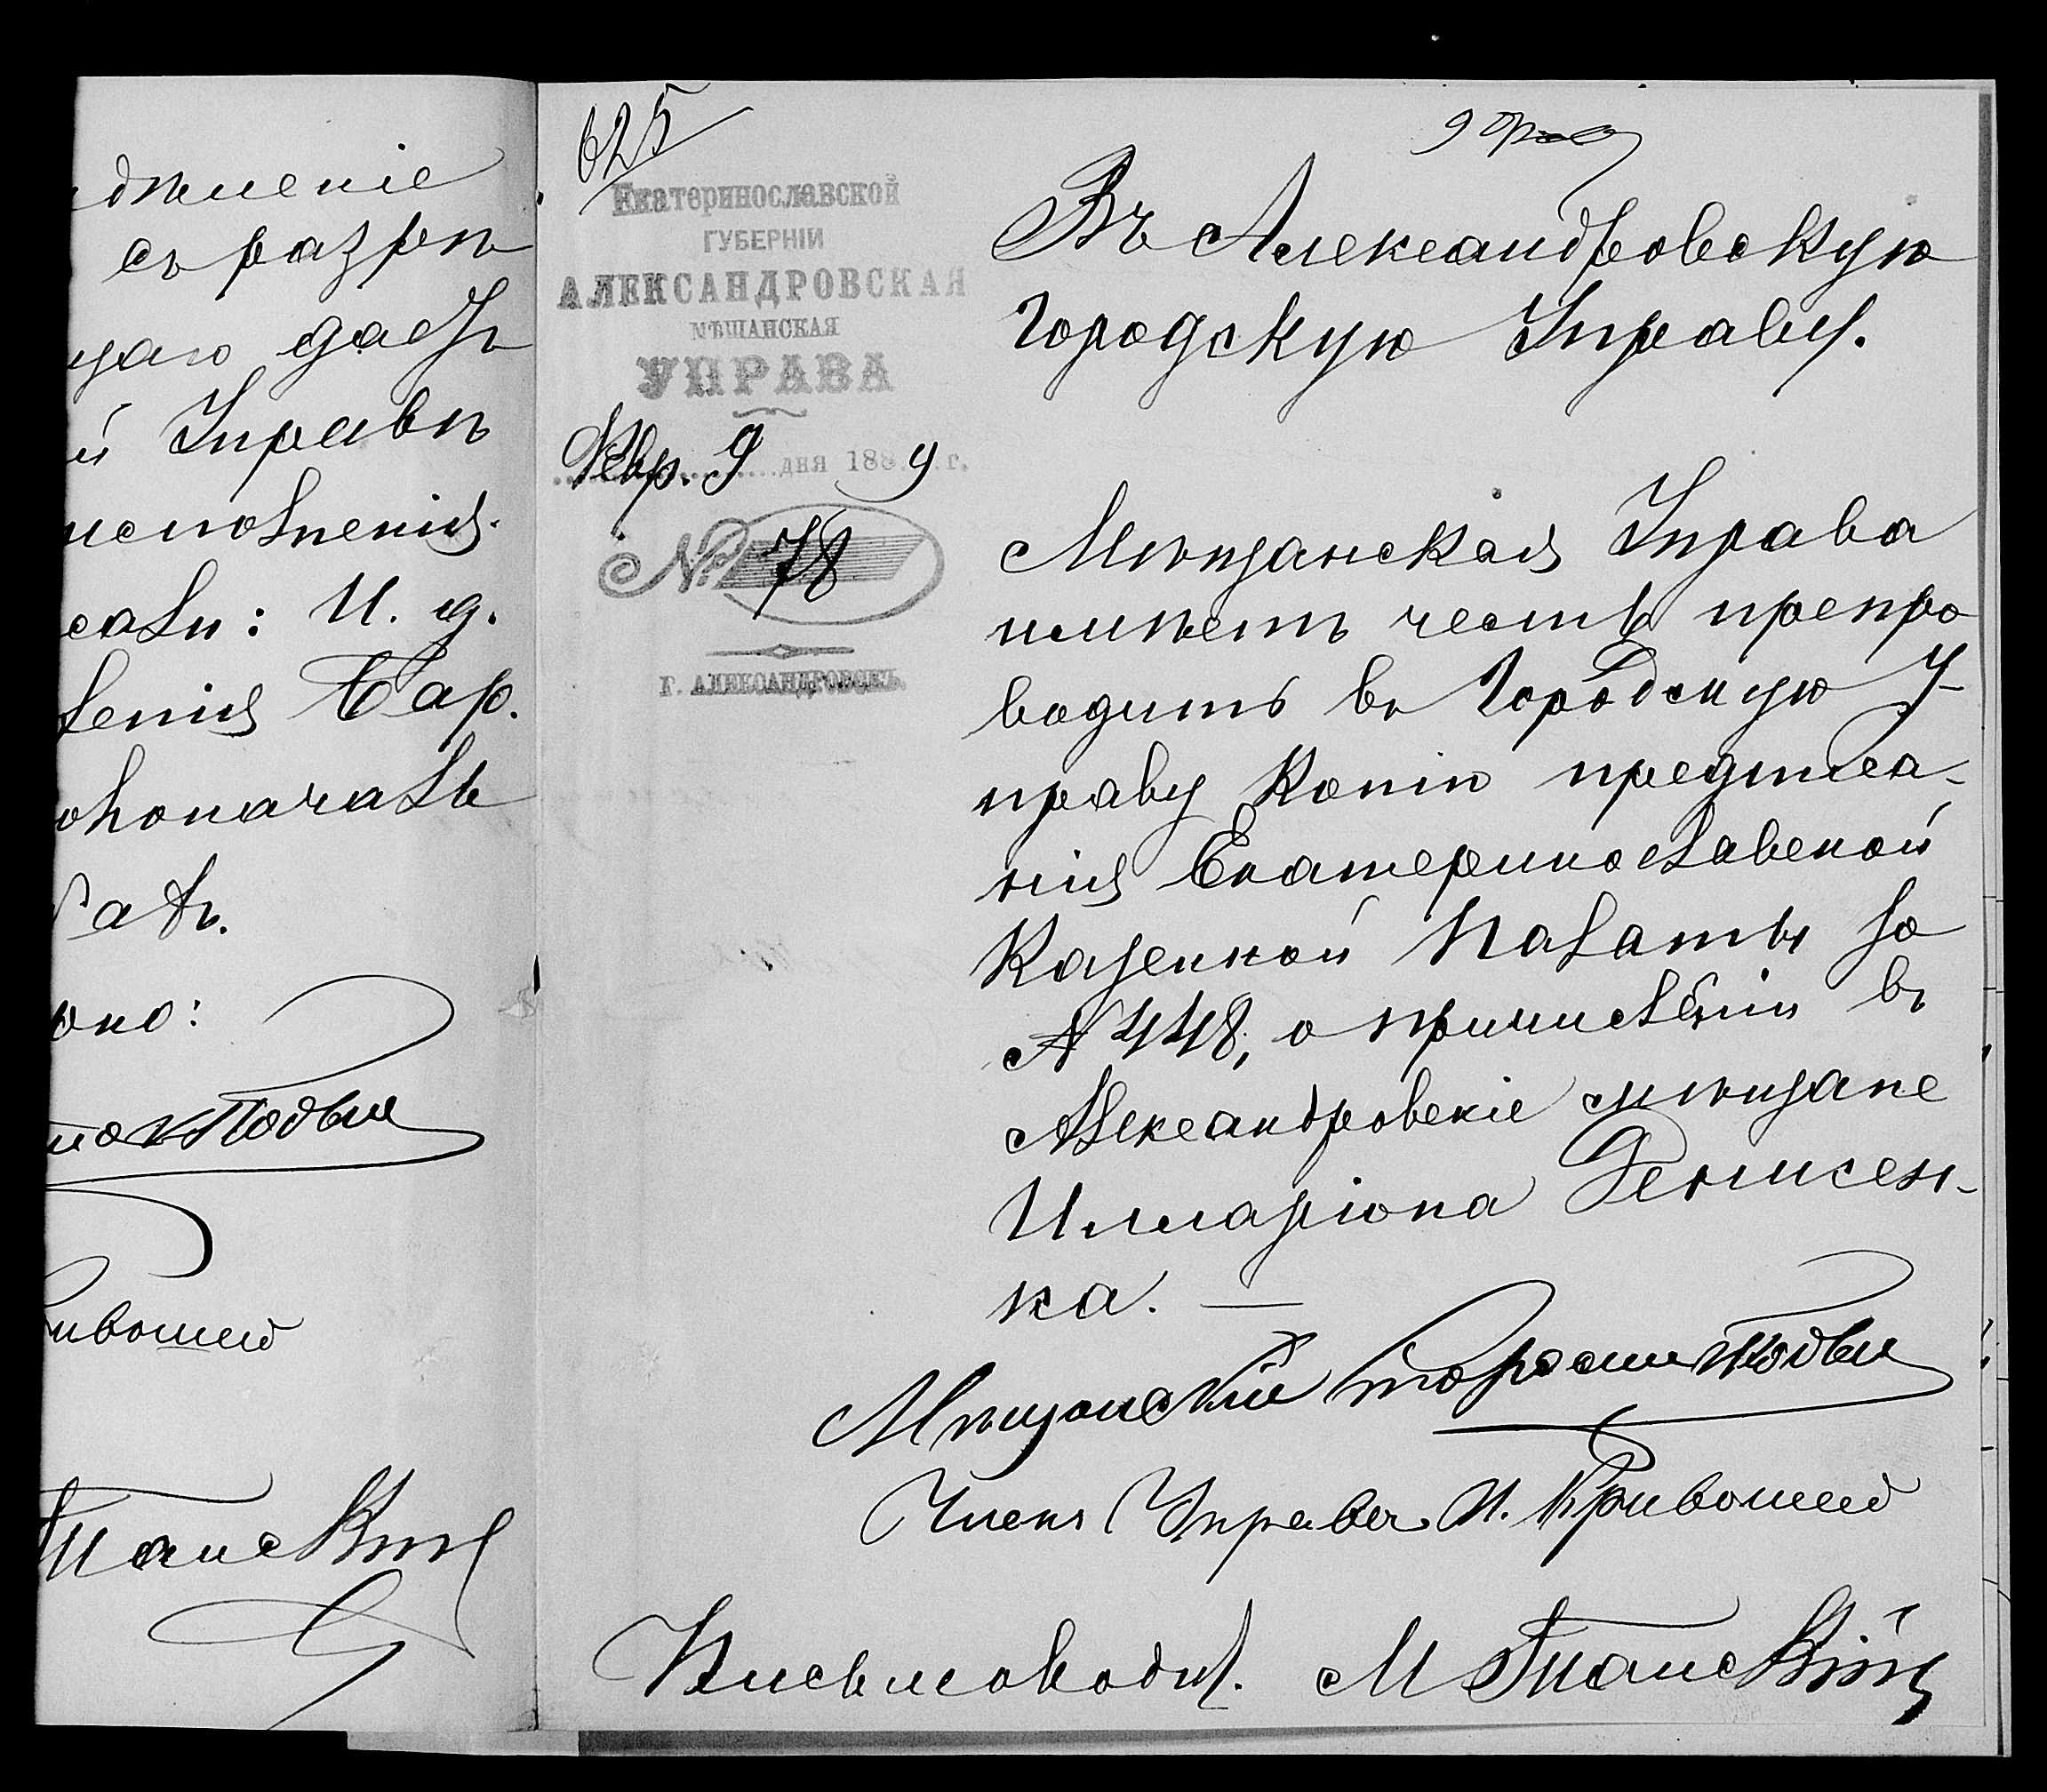 дѣленіе
съ разрѣ
щаю дать
й Управѣ
исполненія.
сали: И. д.
ленія Бар.
лопроизв
латъ.
рно:
Подвы
ривошей
Тианскій
625
9 Февр
Екатеринославской
ГУБЕРНІИ
АЛЕКСАНДРОВСКАЯ
МѢЩАНСКАЯ
УПРАВА
Февр. 9 дня 1889 г.
№ 78
Г. АЛЕКСАНДРОВСКЪ.
Въ Александровскую
Городскую Управу.
Мѣщанская Управа
имѣетъ честь препро
водить въ Городскую У-
праву копію предписа-
нія Екатеринославской
Казенной Палаты за
№ 448, о причисленіи въ
Александровскіе мѣщане
Илларіона Денисен-
ка. —
Мѣщанскій Староста
Членъ Управы И. Кривошей
Письмоводит. М